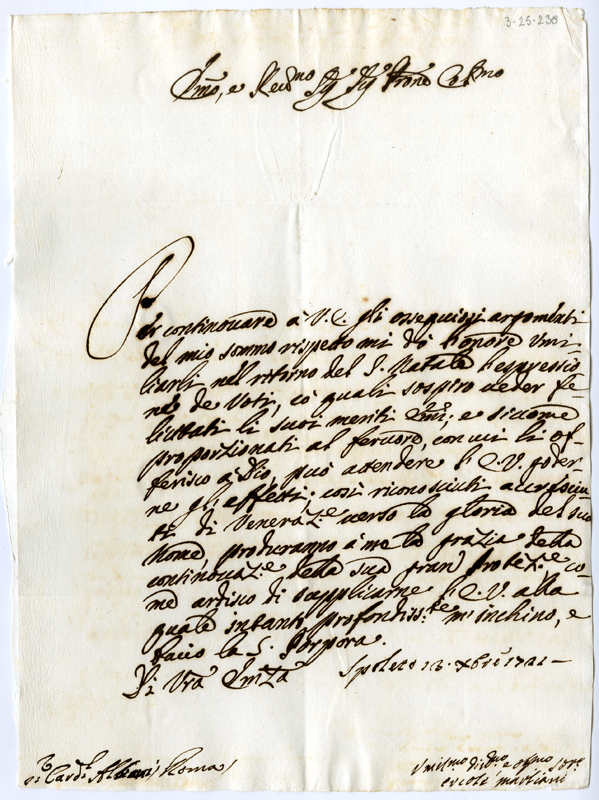 3-25-238
Emo, e Revdmo Sig Sig Prone Colmo
Per continovare à V.E. gli ossequiosi argomenti
del mio sommo rispetto mi dò l'honore Umi-
liarli nel ritorno del S. Natale l'espressio-
ne de Voti, cò quali sospiro veder fe-
licitati li suoi meriti Emi; e siccome
proporzionati al fervore, con cui li of-
ferisco à Dio, può attendere l'E.V. goder-
ne gli effetti; così riconosciuti accresciu-
ti di Veneraze verso la gloria del suo
Nome produranno à me la grazia della
continovaze della sua gran Proteze co-
me ardisco di supplicarne l'E.V. alla
quale intanto profondisste m'inchino, e
bacio la S. Porpora.
Di Vra Emza Spoleto 13 Xbre 1721
Sr Cardl Albani Roma
Umilmo Divmo e Obmo Sre
Ercole Marliani